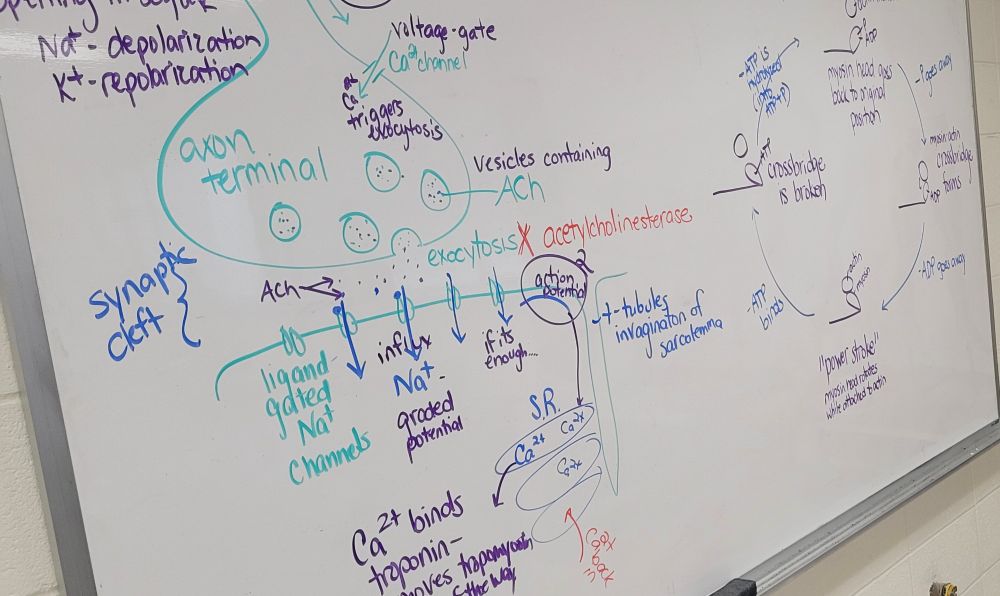 Na+ - depolarization
K+ - repolarization
voltage-gate
Ca2+ channel
Ca2+
triggers
exocytosis
axon
terminal
vesicles containing
ACh
exocytosis X acetylcholinesterase
synaptic
cleft
ACh
action
potential
2
t-tubules
invaginaton of
sarcolemma
ligand
gated
Na+
channels
influx
Na+ -
graded
potential
if its
enough...
S.R.
Ca2+
Ca2+
Ca2+
Ca2+ binds
troponin-
moves tropomyosin
the way
Ca2+
back
in
-ATP is
hydrolyzed
(into
ADP+P)
ADP
myosin head goes
back to original
position
-P goes away
myosin-actin
crossbridge
forms
ADP
ATP
crossbridge
is broken
-ADP goes away
actin
myosin
-ATP
binds
"power stroke"
myosin head rotates
while attached to actin